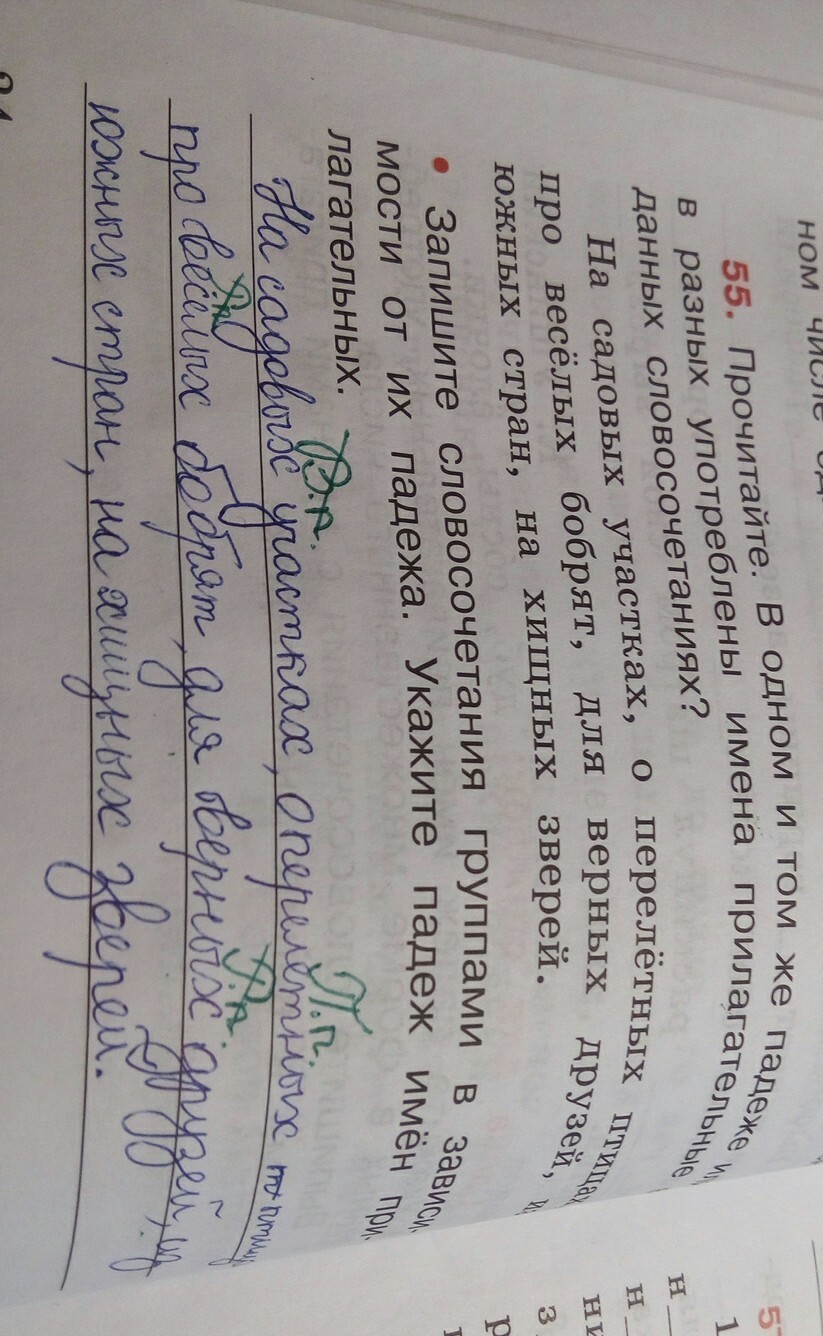 ном числе
55. Прочитайте. В одном и том же падеже
в разных употреблены имена прилагательные
данных словосочетаниях?
На садовых участках, о перелётных птицах
про весёлых бобрят, для верных друзей,
южных стран, на хищных зверей.
• Запишите словосочетания группами в зависи
мости от их падежа. Укажите падеж имён при
лагательных.
В.п. П.п.
На садовых участках, о перелётных птиц
Р.п.
про весёлых бобрят, для верных друзей, из
южных стран, на хищных зверей.